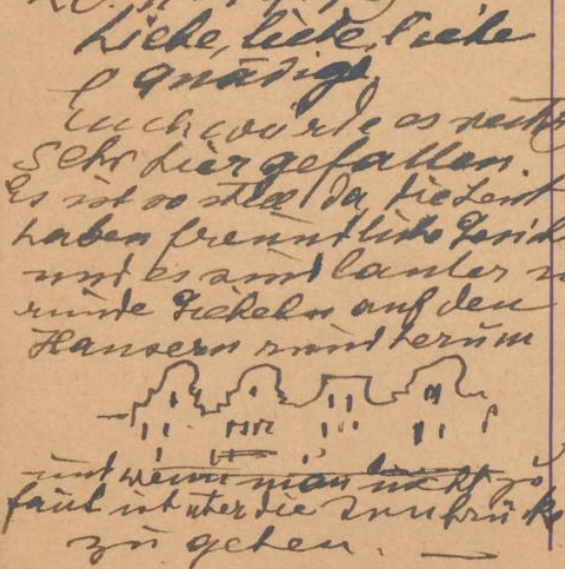 Liebe, liebe, liebe
gnädige
Euch würde es
Sehr hier gefallen.
Es ist so still da die Leut
haben freundliche
und es sind lauter
runde Giebeln auf den
Hausern rund herum
und wenn man nicht zu
faul ist über die Innbrücke
zu gehen.